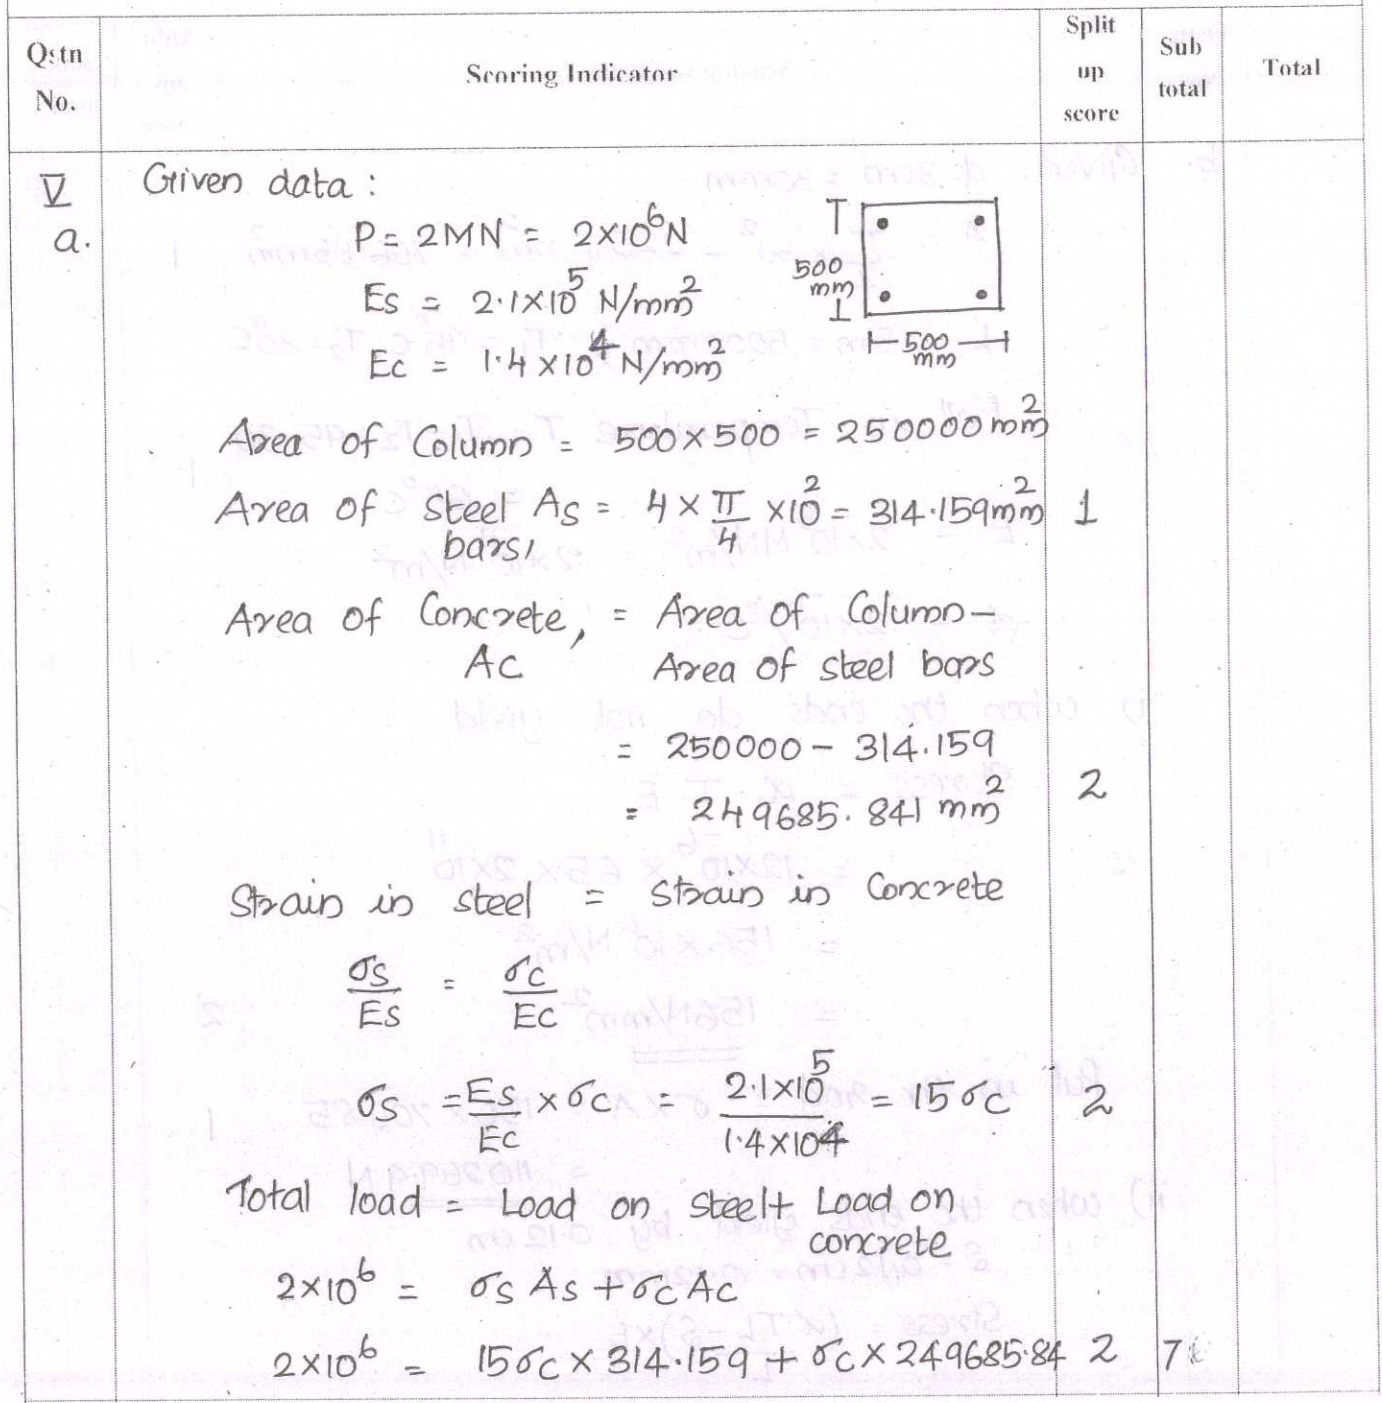 Qstn No. Scoring Indicator Split up score Sub total Total
V a.
Given data :
P = 2MN = 2×10⁶N
Es = 2.1×10⁵ N/mm²
Ec = 1.4×10⁴ N/mm²
500 mm
500 mm
Area of Column = 500×500 = 250000 mm²
Area of steel bars, As = 4 × π/4 ×10² = 314.159mm² 1
Area of Concrete, Ac = Area of Column – Area of steel bars
= 250000 – 314.159
= 249685.841 mm² 2
Strain in steel = strain in Concrete
σs/Es = σc/Ec
σs = Es/Ec × σc = 2.1×10⁵/1.4×10⁴ = 15 σc 2
Total load = Load on steel + Load on concrete
2×10⁶ = σs As + σc Ac
2×10⁶ = 15σc × 314.159 + σc × 249685.84 2 7